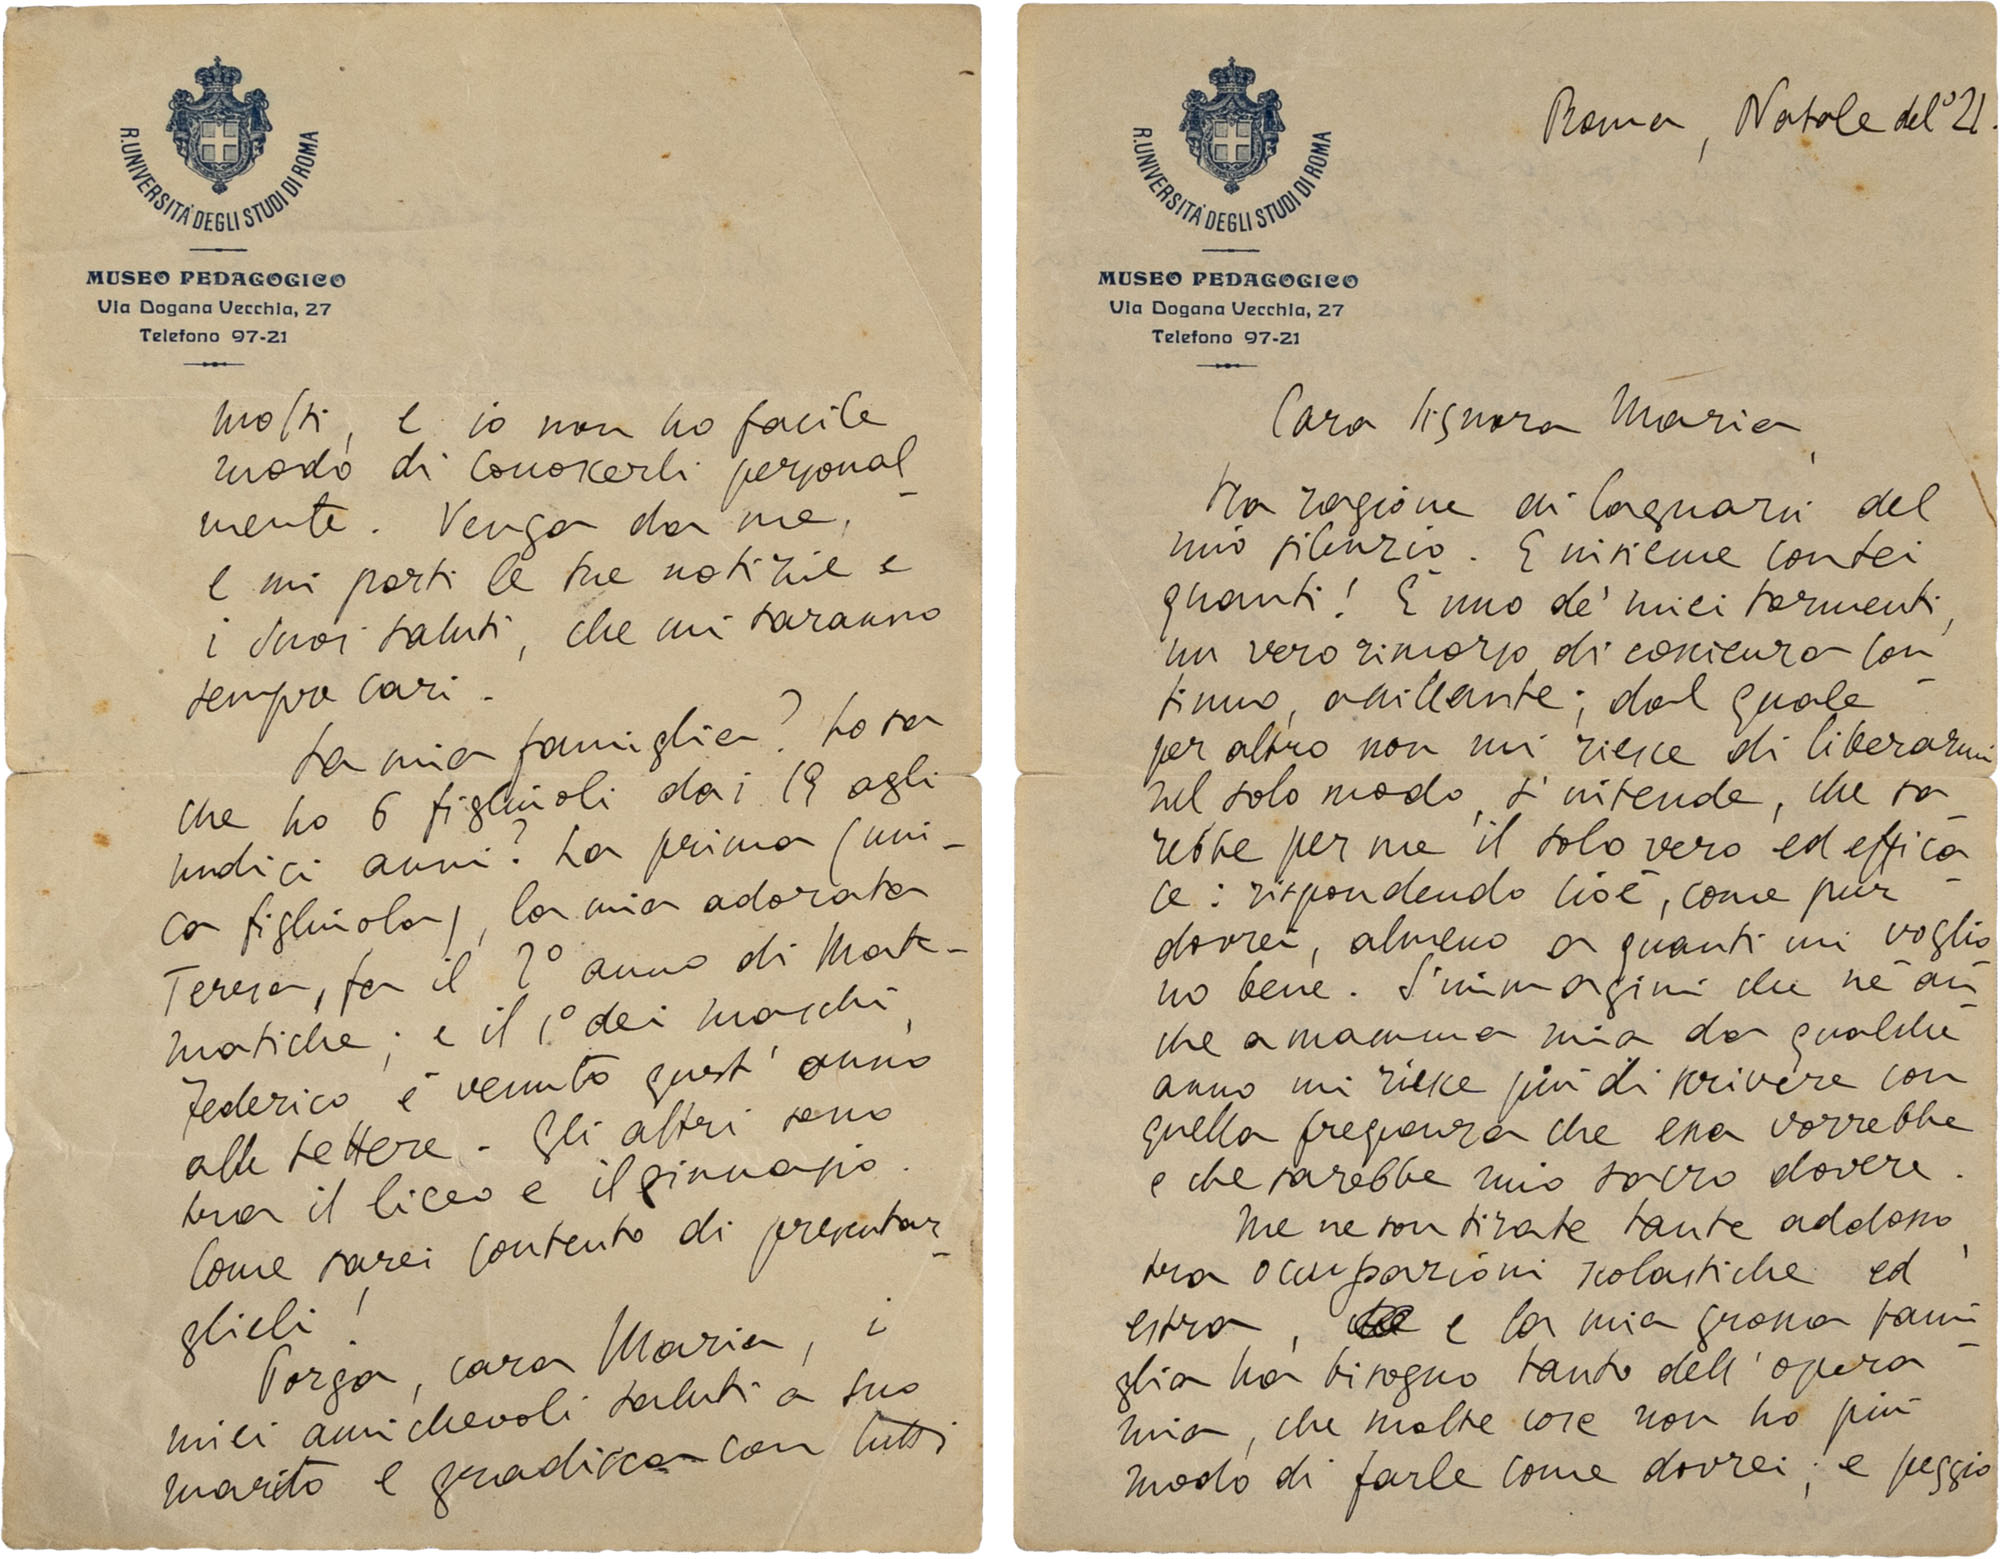 R. UNIVERSITÀ DEGLI STUDI DI ROMA
MUSEO PEDAGOGICO
Via Dogana Vecchia, 27
Telefono 97-21
molti, e io non ho facile
modo di conoscerli personal-
mente. Venga da me,
e mi porti le sue notizie e
i suoi saluti, che mi saranno
sempre cari.
La mia famiglia? Lo sa
che ho 6 figliuoli dai 19 agli
undici anni? La prima (uni-
ca figliuola), la mia adorata
Teresa, fa il 2° anno di Mate-
matiche; e il 1° dei maschi,
Federico è venuto quest'anno
alle Lettere. Gli altri sono
tra il liceo e il ginnasio.
Come sarei contento di presentar-
glieli!
Porga, cara Maria, i
miei amichevoli saluti a suo
marito e gradisca con tutti
R. UNIVERSITÀ DEGLI STUDI DI ROMA
MUSEO PEDAGOGICO
Via Dogana Vecchia, 27
Telefono 97-21
Roma, Natale del '21.
Cara Signora Maria,
Ha ragione di lagnarsi del
mio silenzio. E insieme con lei
quanti! È uno de' miei tormenti,
un vero rimorso di coscienza con-
tinuo, assillante; dal quale
per altro non mi riesce di liberarmi
nel solo modo, s'intende, che sa-
rebbe per me il solo vero ed effica-
ce: rispondendo cioè, come pur
dovrei, almeno a quanti mi voglio-
no bene. S'immagini che né an-
che a mamma mia da qualche
anno mi riesce più di scrivere con
quella frequenza che essa vorrebbe
e che sarebbe mio sacro dovere.
Me ne son tirate tante addosso,
tra occupazioni scolastiche ed
estra, e la mia grossa fami-
glia ha bisogno tanto dell'opera
mia, che molte cose non ho più
modo di farle come dovrei; e peggio